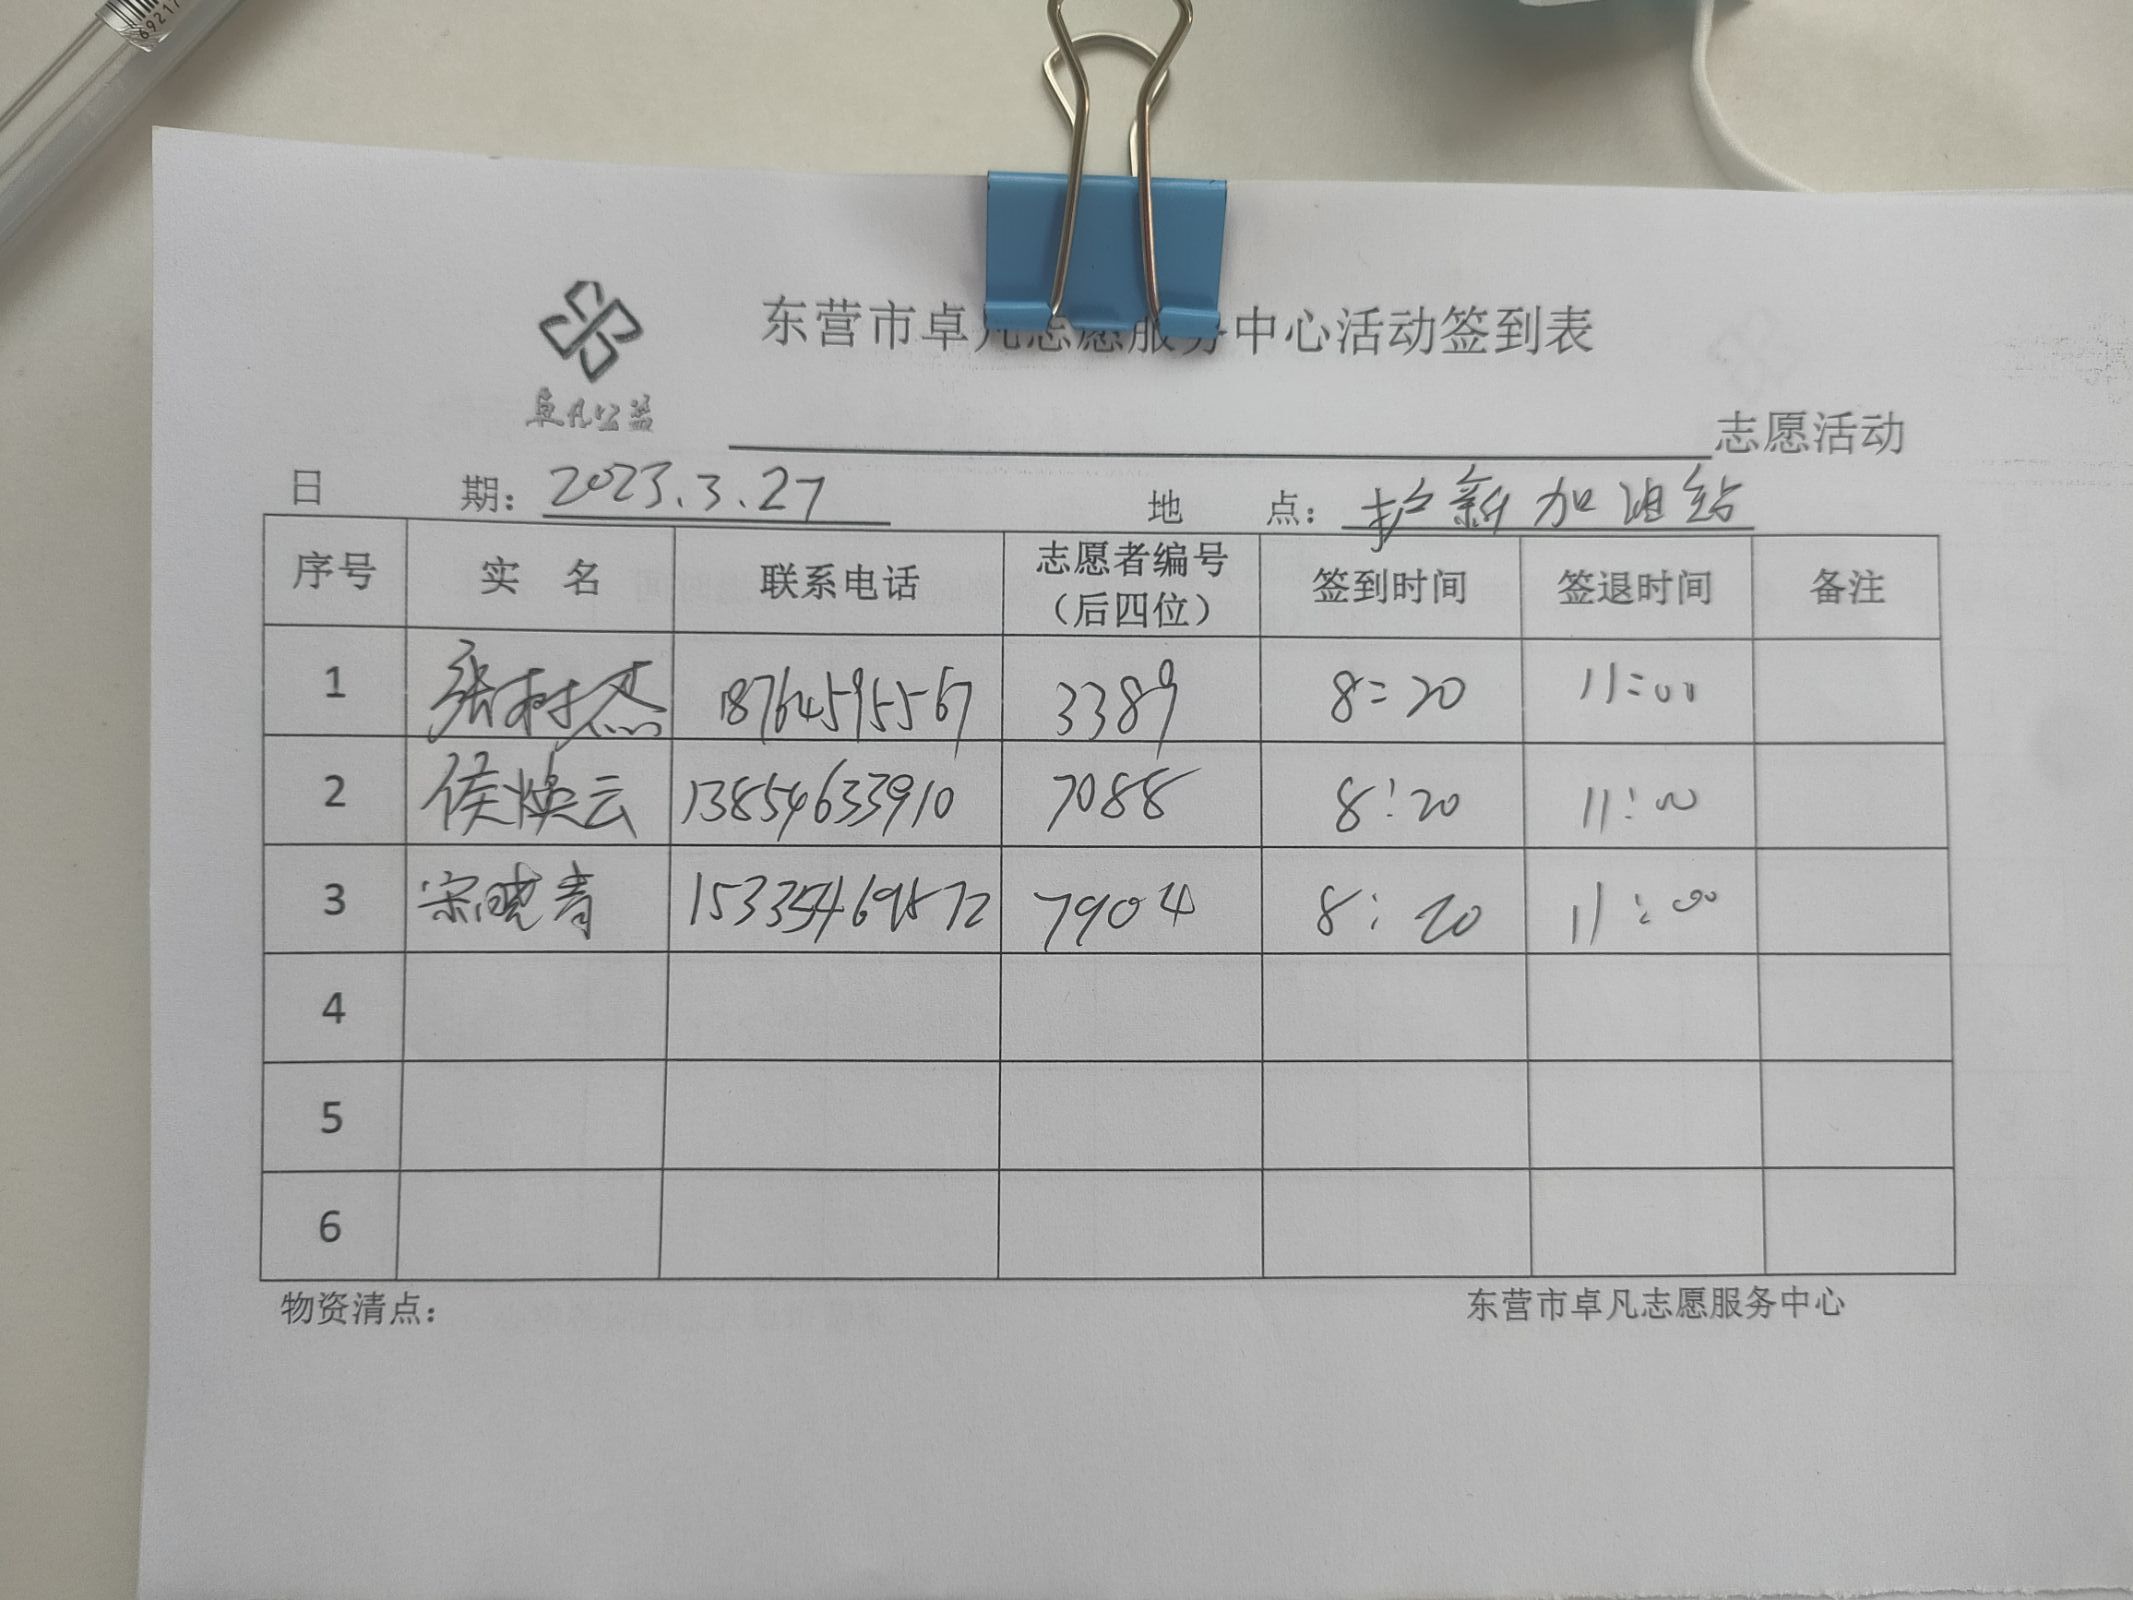 69217
东营市卓凡志愿服务中心活动签到表
卓凡公益
志愿活动
日 期：2023.3.27 地 点：护新加油站
序号 实 名 联系电话 志愿者编号（后四位） 签到时间 签退时间 备注
1 张树杰 18764595567 3389 8:20 11:00
2 侯焕云 13854633910 7088 8:20 11:00
3 宋晓青 7904 8:20 11:00
4
5
6
物资清点： 东营市卓凡志愿服务中心